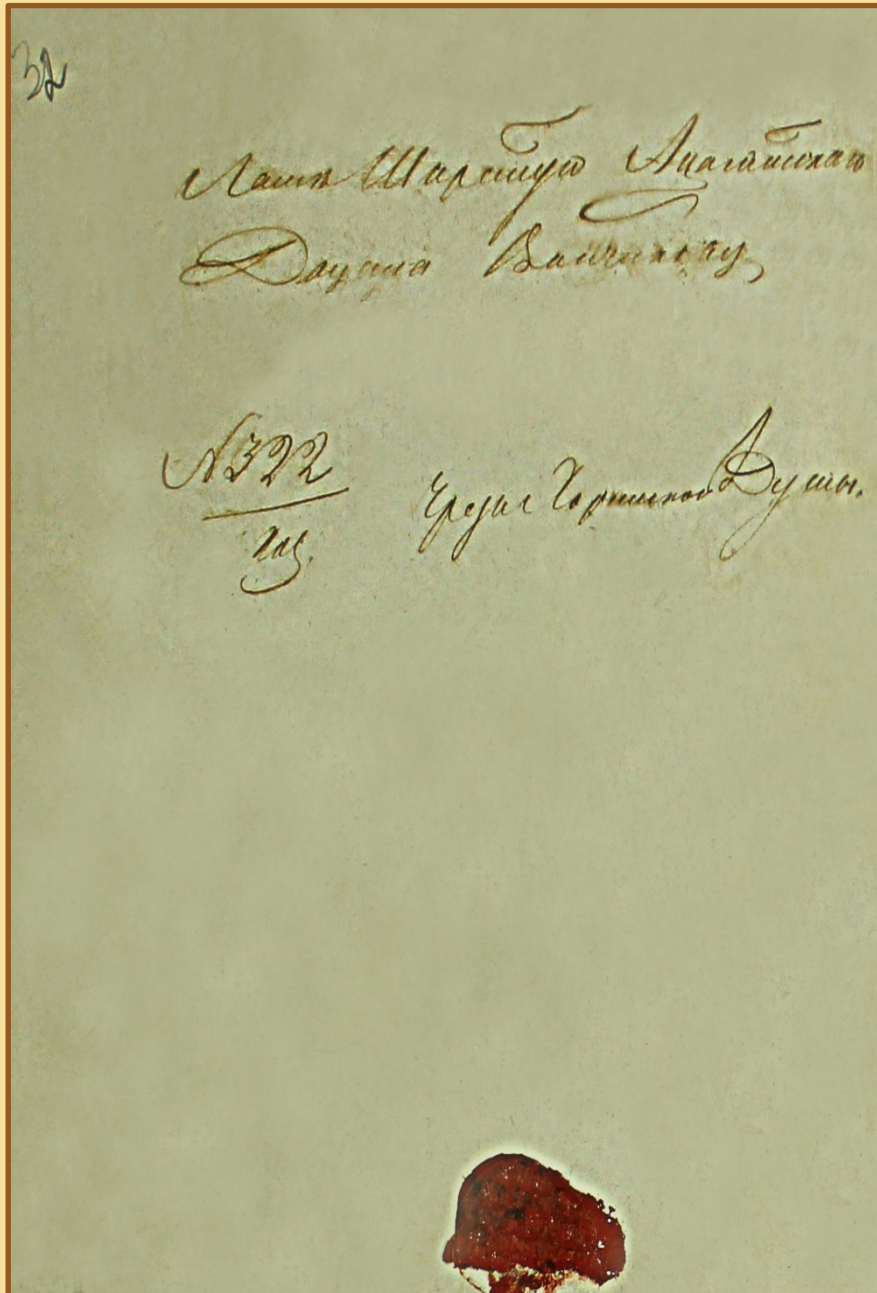 32
Ламѣ Ширетую Анагатскаго
Дацана Ванчикову
№ 322
Чрезъ Хоринскою Думы.